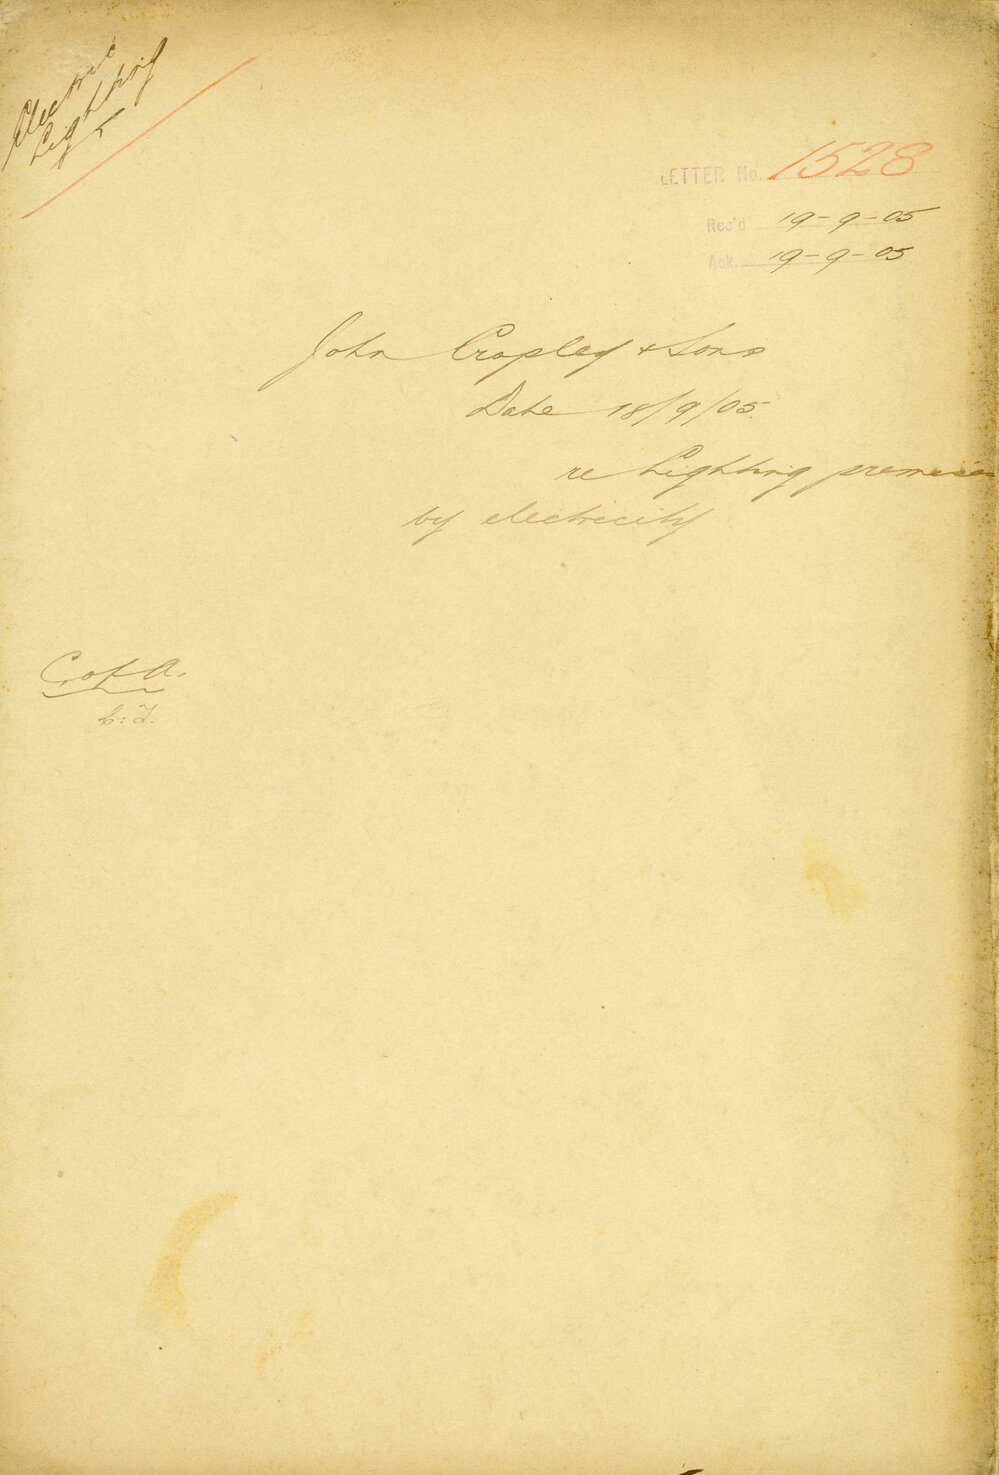 Electric
Lighting
LETTER No. 1528
Rec'd 19-9-05
Ack. 19-9-05
John Cropley & Sons
Date 18/9/05.
re Lighting premises
by electricity
C of A.